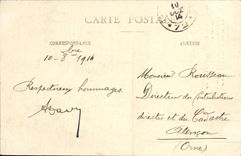 CARTE POSTALE
CORRESPONDANCE
ADRESSE
10-8bre 1914
Respectueux hommages
Monsieur Rousseau
Directeur des Contributions
directes et du Cadastre
Alençon
(Orne)